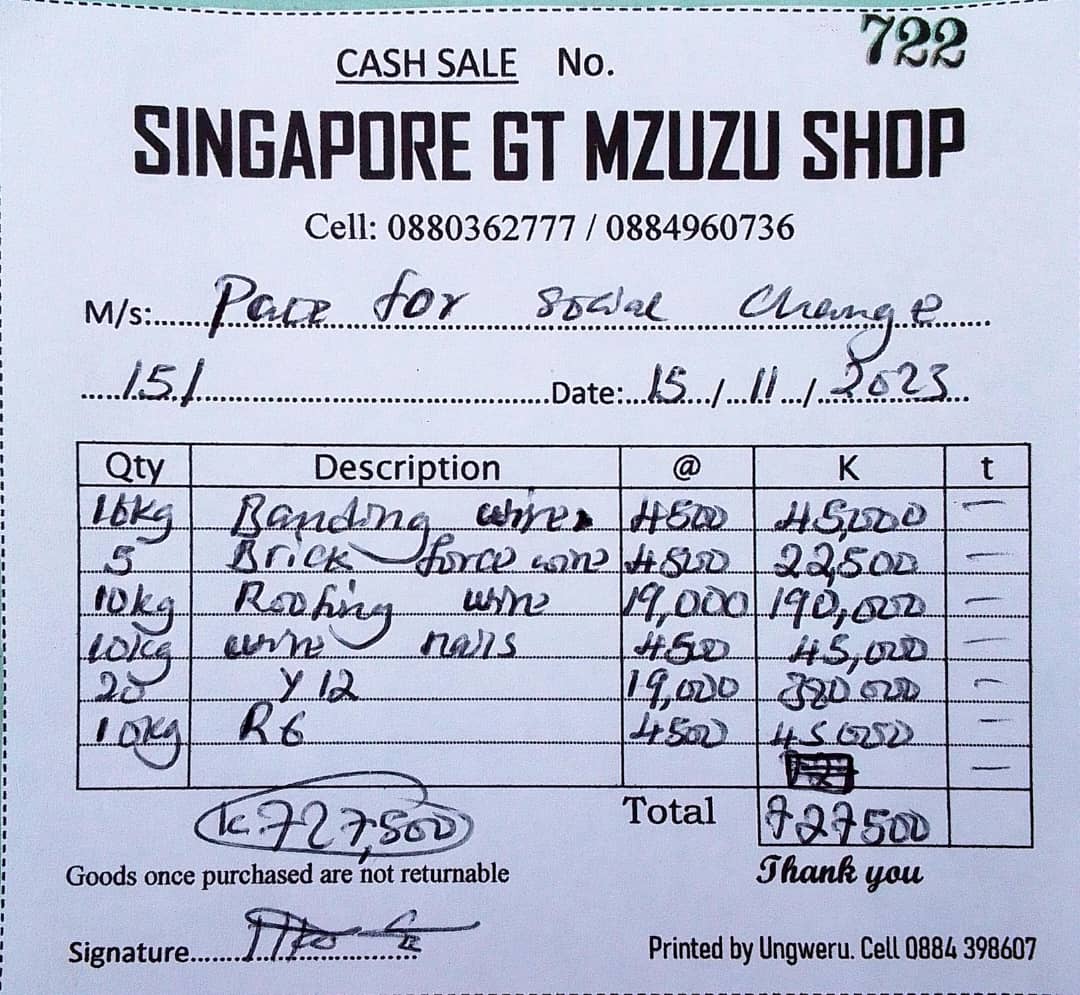 722
CASH SALE No.
SINGAPORE GT MZUZU SHOP
Cell: 0880362777 / 0884960736
M/s: Pace for Social Change
15/ Date: 15 / 11 / 2023
Qty Description @ K t
10kg Banding wire 4500 45,000 —
5 Brick force wire 4500 22,500 —
10kg Roofing wire 19,000 190,000 —
10kg wire nails 4500 45,000 —
20 Y12 19,000 380 000 —
10kg R6 4500 45 000 —
—
K727,500 Total 727500
Goods once purchased are not returnable Thank you
Signature Printed by Ungweru. Cell 0884 398607